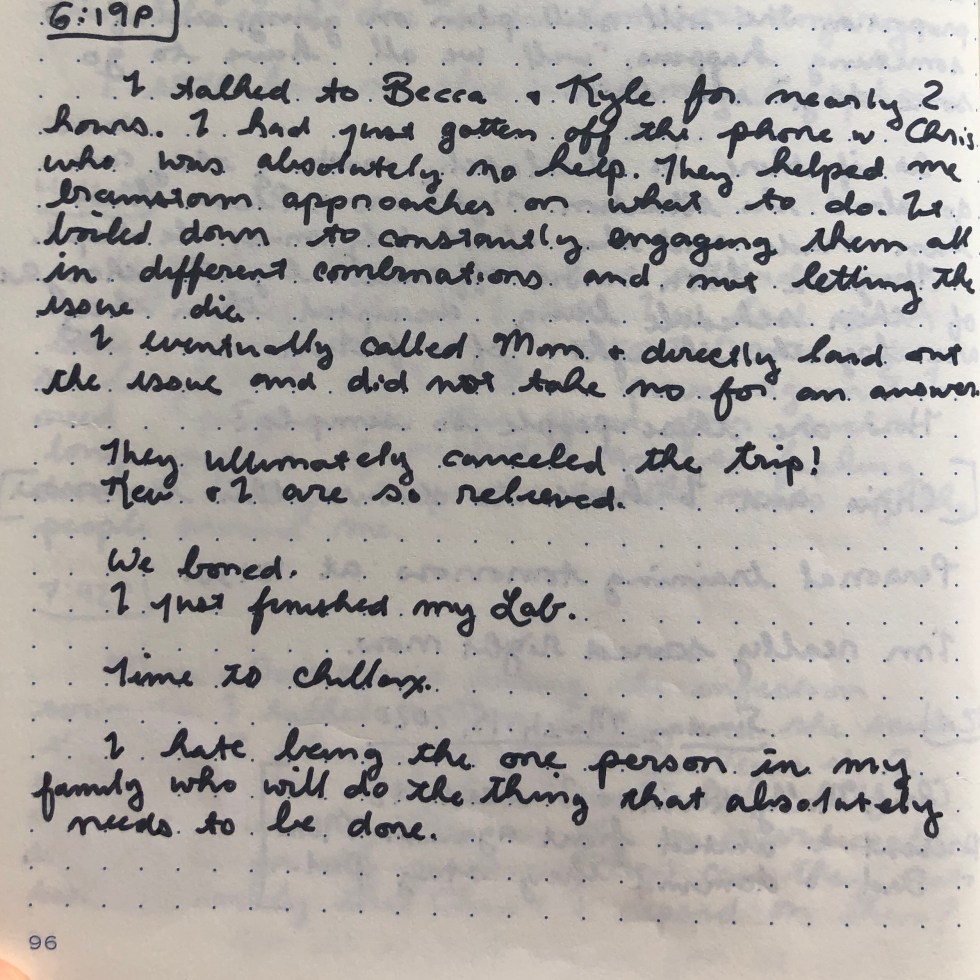 6:19P
I talked to Becca + Kyle for nearly 2
hours. I had just gotten off the phone w Chris
who was absolutely no help. They helped me
brainstorm approaches on what to do. It
boiled down to constantly engaging them all
in different combinations and not letting the
issue die.
I eventually called Mom + directly laid out
the issue and did not take no for an answer.
They ultimately canceled the trip!
+ I are so relieved.
We boned.
I just finished my Lab.
Time to chillax.
I hate being the one person in my
family who will do the thing that absolutely
needs to be done.
96